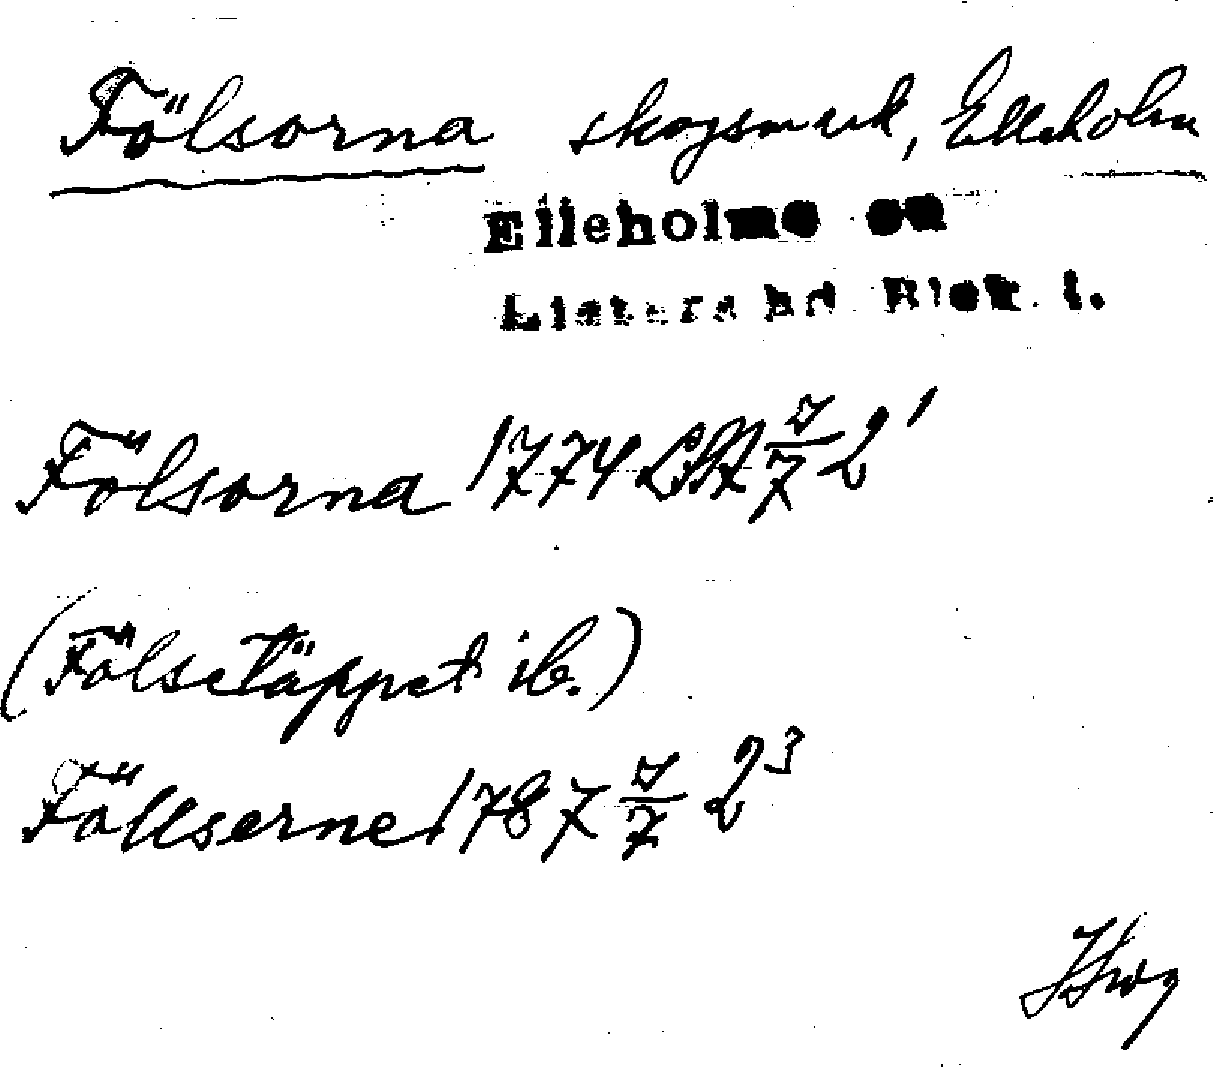 Fölsorna skogsmark, Elleholm
Elleholms sn
Listers hd Blek. l.
Fölsorna 1774 LM 7/7 2¹
(Fölsetäppet ib.)
Föllserne 1787 7/7 2³